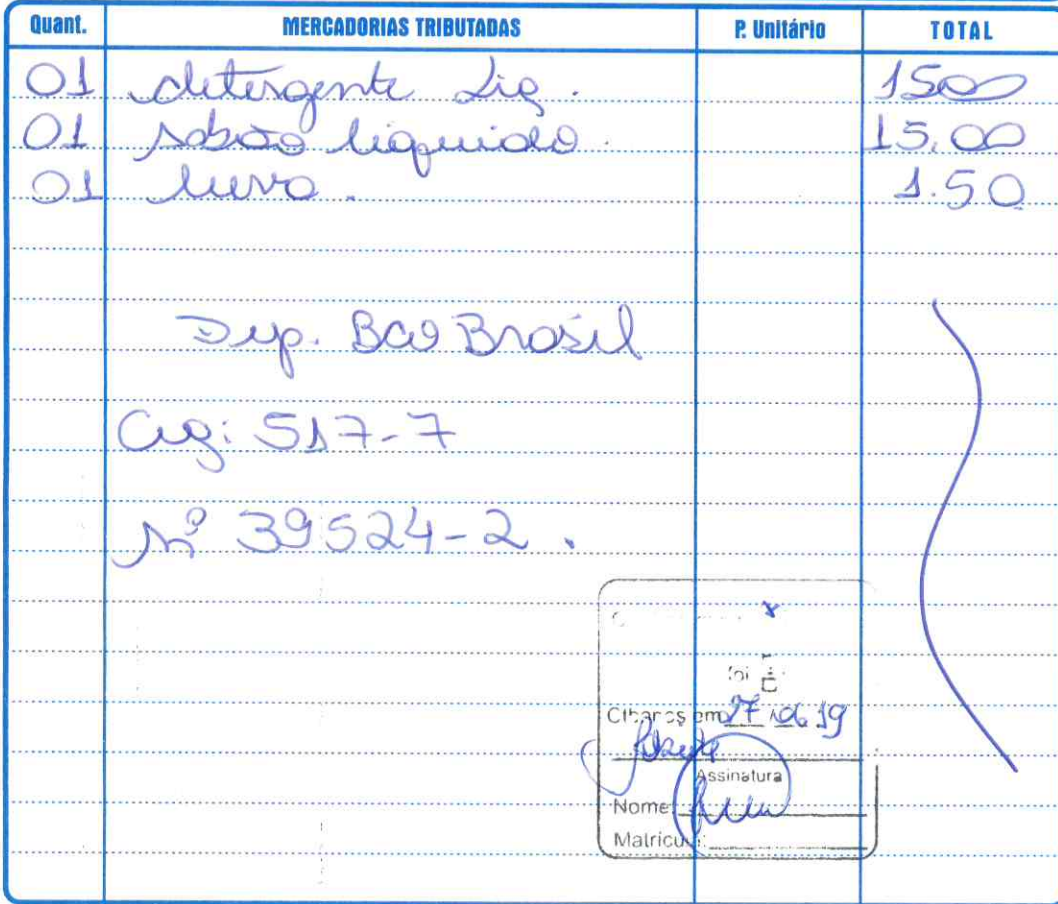 Quant. MERCADORIAS TRIBUTADAS P. Unitário TOTAL
01 detergente Liq. 1500
01 sabão liquido. 15.00
01 luva. 1.50
Dep. Bco Brasil
Ag: 517-7
Nº 39524-2.
foi
em 27 19
Assinatura
Nome